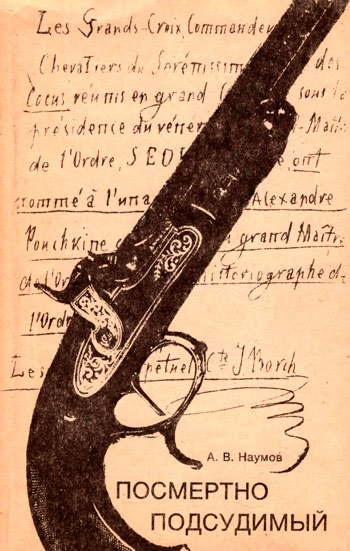 Les Grands-Croix, Commandeu
Chevaliers du Sérénissim des
Cocus réunis en grand C sous la
présidence du véner -Maît
de l'Ordre, S. E. D. e, ont
nommé à l'una Alexandre
Pouchkine c grand Maître
de l'Or historiographe d
l'Ordr
Les pétuel, Cte J. Borch
А. В. Наумов
ПОСМЕРТНО
ПОДСУДИМЫЙ